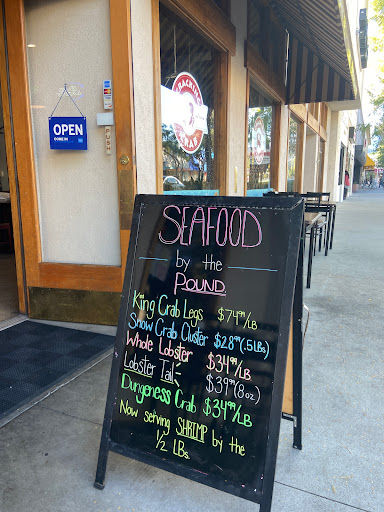 OPEN
COME IN
PUSH
CRAB
SEAFOOD
by the
POUND
King Crab Legs $74.99/LB
Snow Crab Cluster $28.99 (.5 LBs)
Whole Lobster $34.99/LB
Lobster Tail $39.99 (8oz)
Dungeness Crab $34.99/LB
Now serving SHRIMP by the
1/2 LBs.